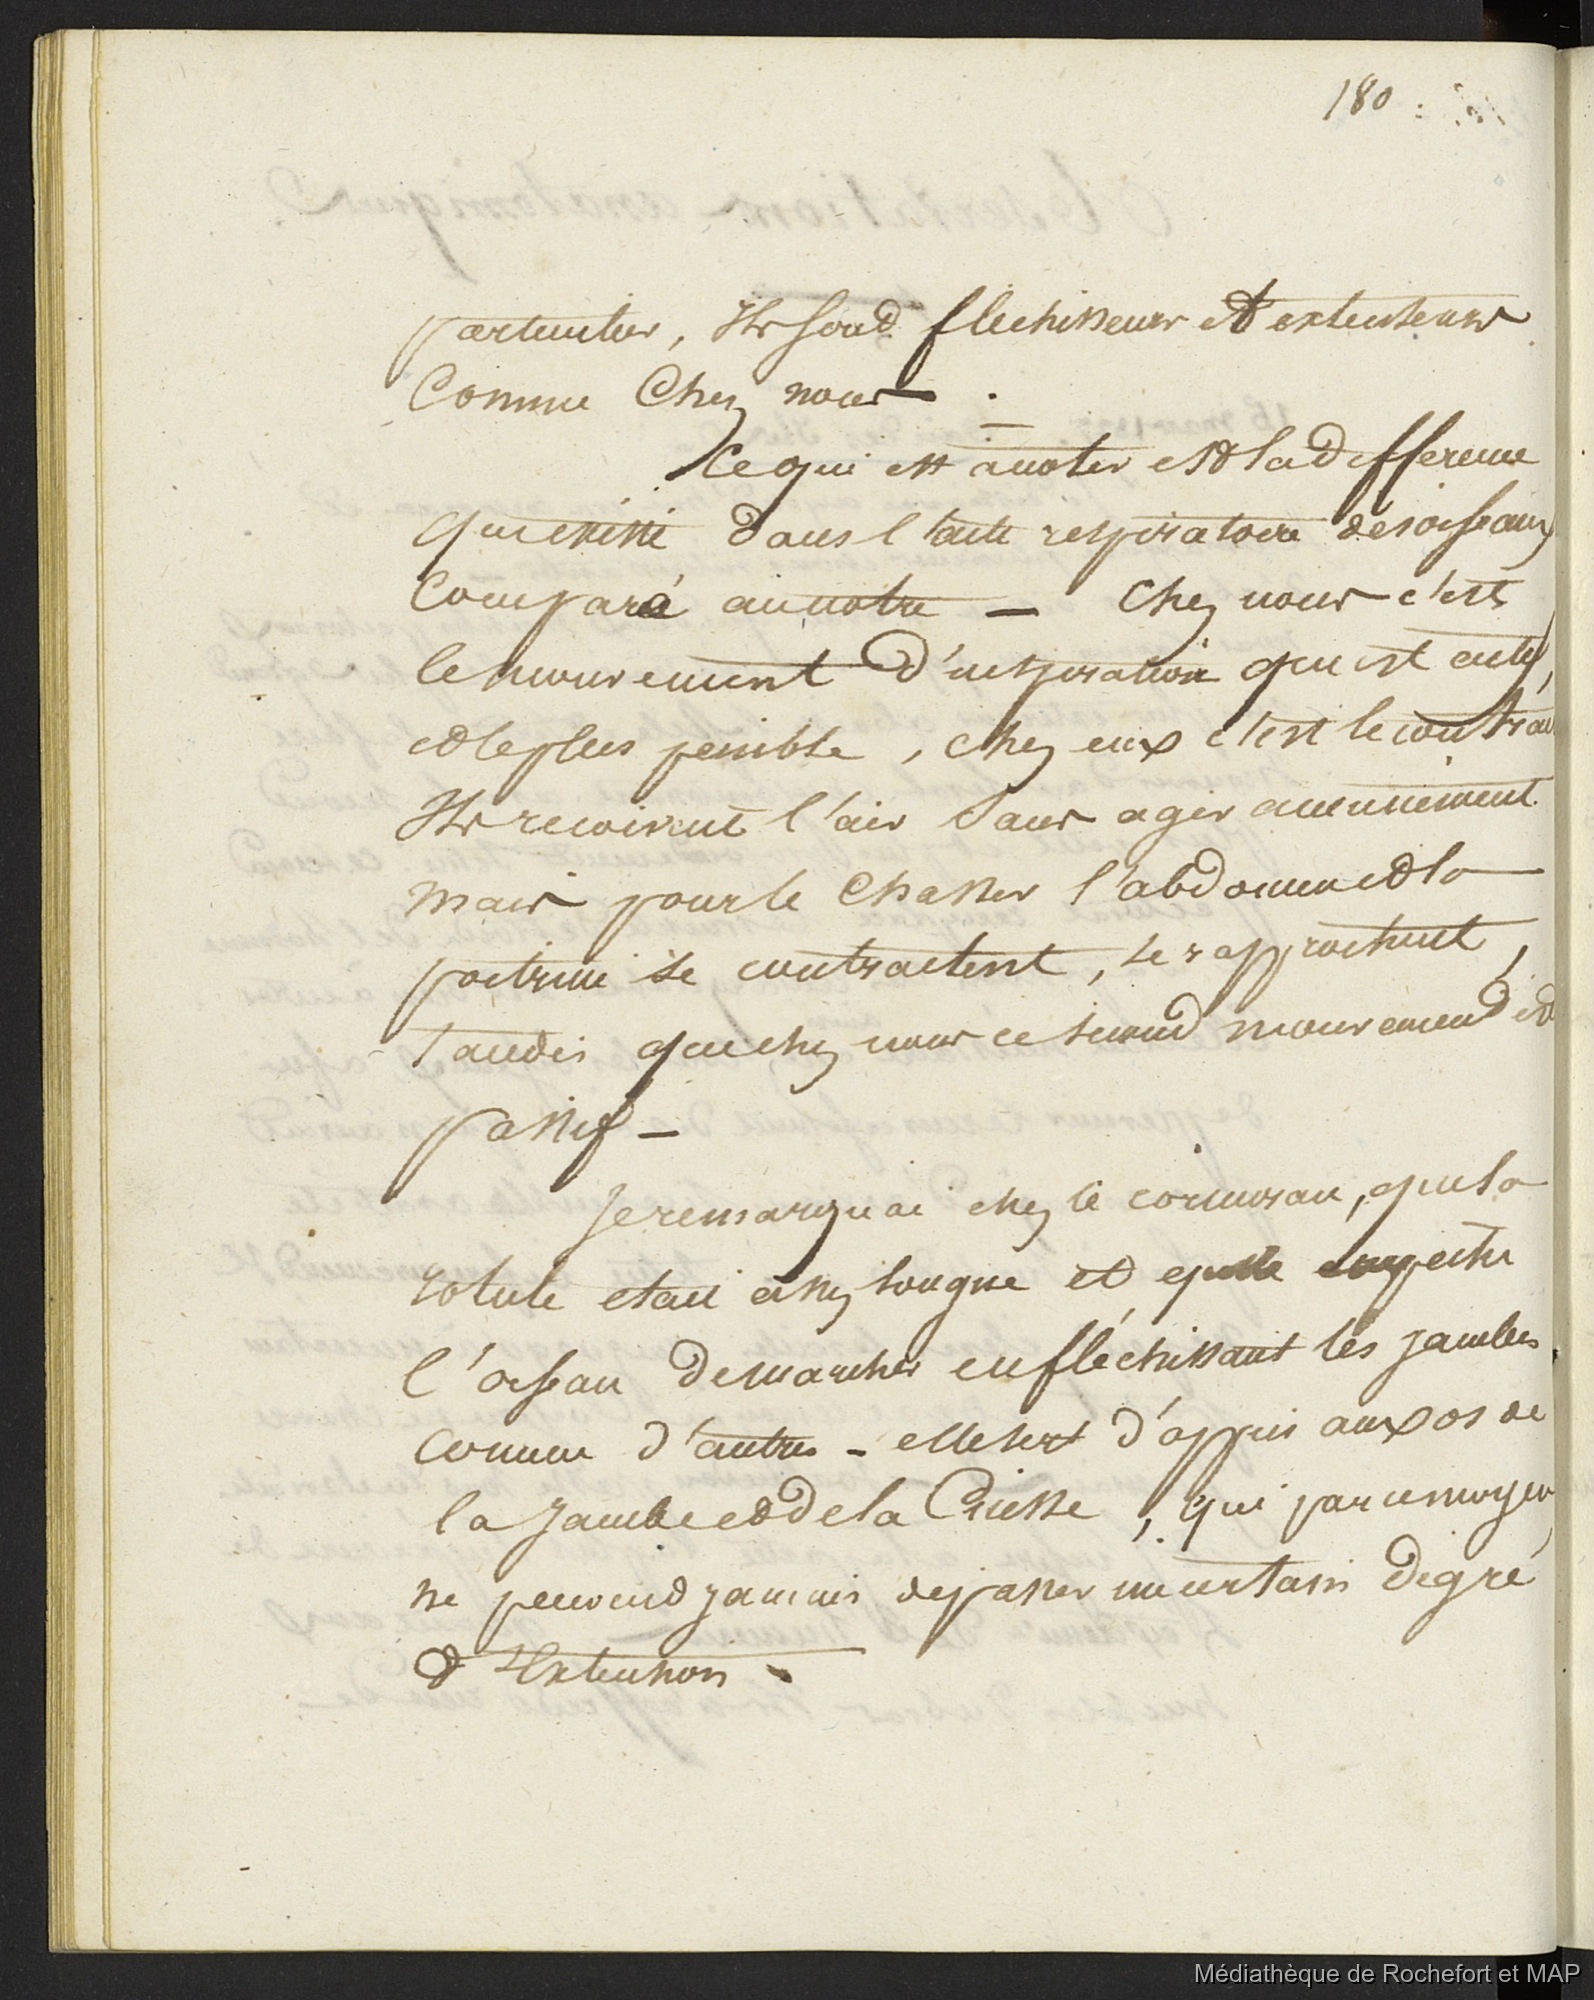 180
particulier, Ils sond flechisseurs et extenseurs
Comme Chez nous — .
Ce qui est à noter est la difference
qui existe dans l'acte respiratoire des oiseaux
Comparé au notre — Chez nous c'est
le mouvement d'inspiration qui est actif,
et le plus penible, chez eux c'est le contrai
Ils recoivent l'air sans agir aucunement
mais pour le Chasser l'abdomen et la
poitrine se contractent, se rapprochent,
Tandis que chez nous ce second mouvement est
passif —
Je remarquai chez le cormoran, que la
rotule etait assez longue et empeche
l'oiseau de marcher en fléchissant les jambes
comme d'autres - elle sert d'appui aux os de
la jambe et de la Cuisse, qui par ce moyen
ne peuvend jamais depasser un certain degré
d'Extension -
Médiathèque de Rochefort et MAP